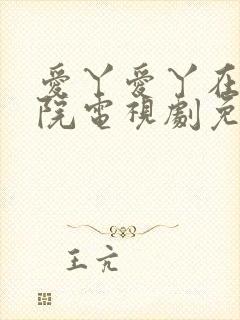 愛丫愛丫在
院電視劇免
王亢